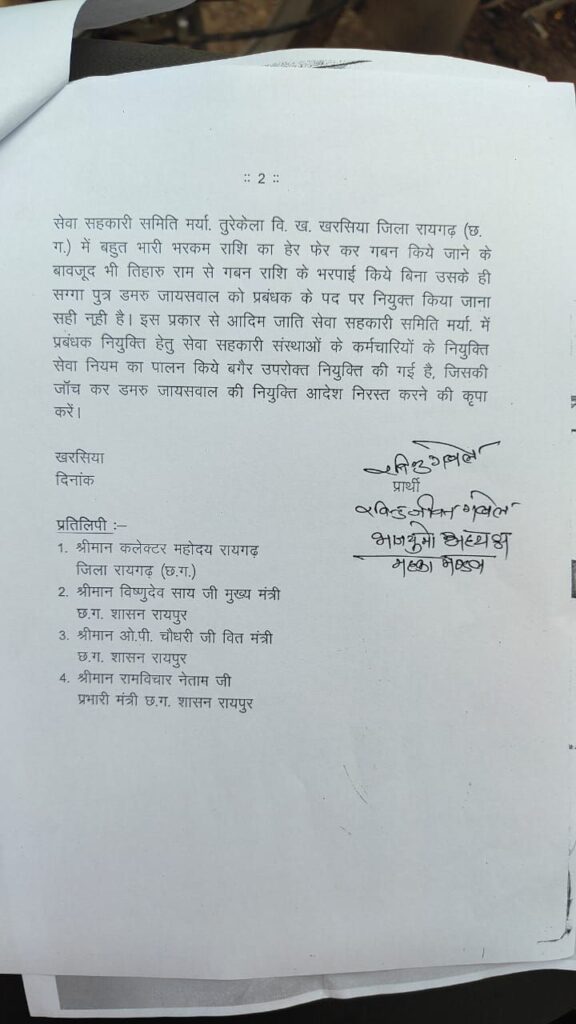 :: 2 ::
सेवा सहकारी समिति मर्या. तुरेकेला वि. ख. खरसिया जिला रायगढ़ (छ.
ग.) में बहुत भारी भरकम राशि का हेर फेर कर गबन किये जाने के
बावजूद भी तिहारु राम से गबन राशि के भरपाई किये बिना उसके ही
सग्गा पुत्र डमरु जायसवाल को प्रबंधक के पद पर नियुक्त किया जाना
सही नही है। इस प्रकार से आदिम जाति सेवा सहकारी समिति मर्या. में
प्रबंधक नियुक्ति हेतु सेवा सहकारी संस्थाओं के कर्मचारियों के नियुक्ति
सेवा नियम का पालन किये बगैर उपरोक्त नियुक्ति की गई है, जिसकी
जॉच कर डमरु जायसवाल की नियुक्ति आदेश निरस्त करने की कृपा
करें।
खरसिया
दिनांक
प्रार्थी
गवेल
अध्यक्ष
प्रतिलिपी :–
1. श्रीमान कलेक्टर महोदय रायगढ़
जिला रायगढ़ (छ.ग.)
2. श्रीमान विष्णुदेव साय जी मुख्य मंत्री
छ.ग. शासन रायपुर
3. श्रीमान ओ.पी. चौधरी जी वित मंत्री
छ.ग. शासन रायपुर
4. श्रीमान रामविचार नेताम जी
प्रभारी मंत्री छ.ग. शासन रायपुर